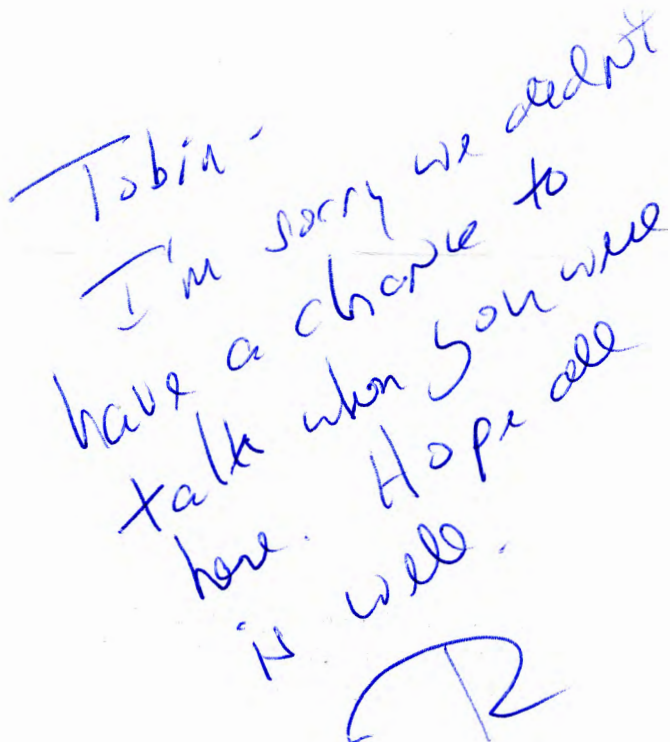 Tobin-
I'm sorry we didn't
have a chance to
talk when you were
here. Hope all
is well.
R